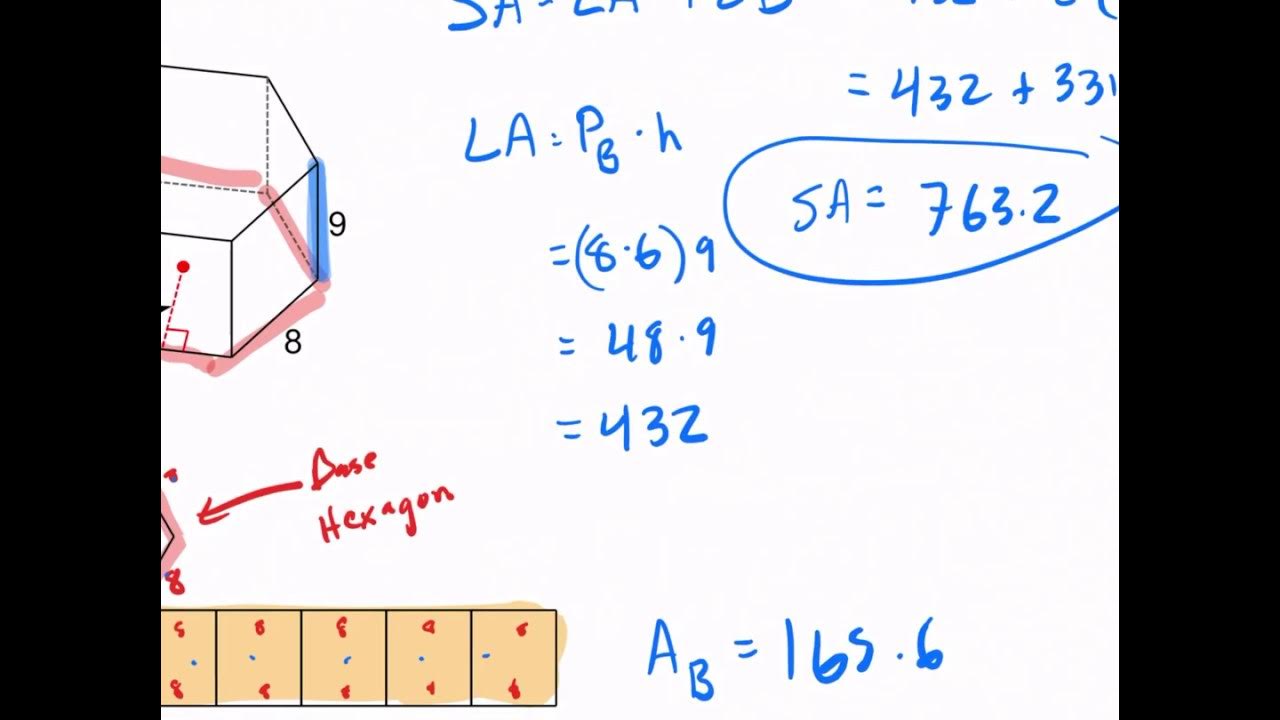 SA = LA +
= 432 + 331
LA = P_B · h
SA = 763.2
9
= (8·6) 9
8
= 48·9
= 432
Base
Hexagon
8
8 8 8 8 8
8 8 8 8 8
A_B = 165.6